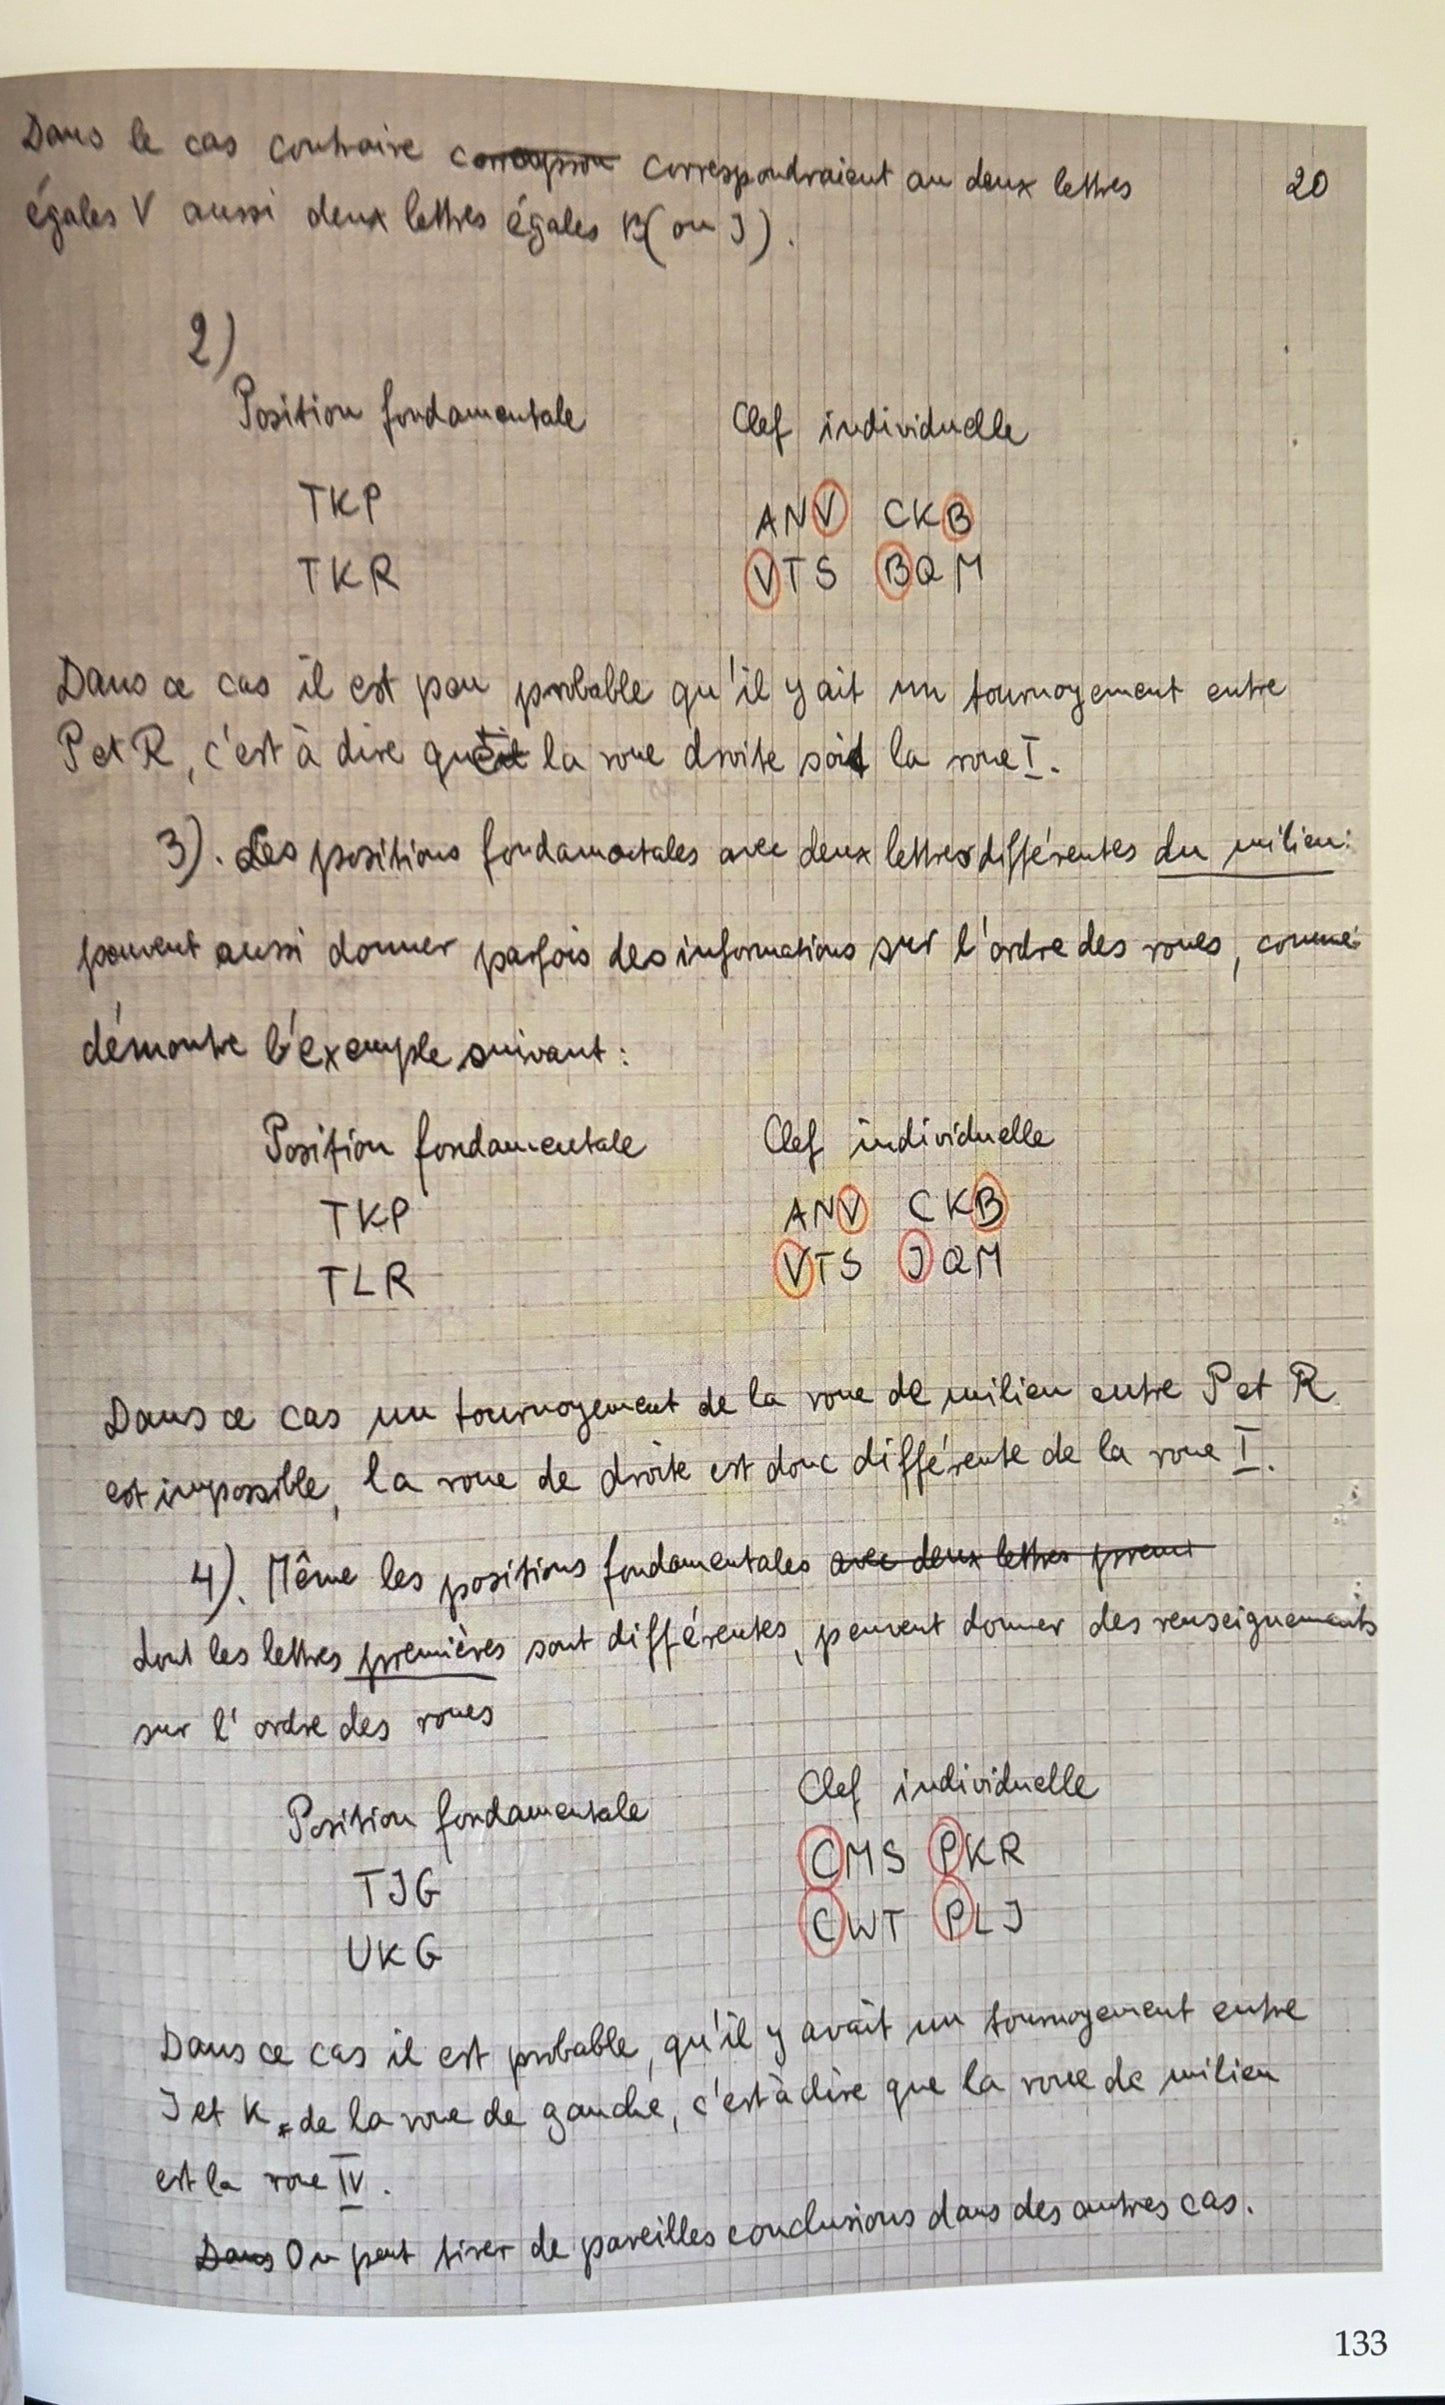 Dans le cas contraire correspondraient au deux lettres 20
égales V aussi deux lettres égales B (ou J).
2)
Position fondamentale Clef individuelle
TKP ANV CKB
TKR VTS BQM
Dans ce cas il est peu probable qu'il y ait un tournoyement entre
P et R, c'est à dire que la roue droite soit la roue I.
3). Les positions fondamentales avec deux lettres différentes du milieu:
peuvent aussi donner parfois des informations sur l'ordre des roues, comme
démontre l'exemple suivant:
Position fondamentale Clef individuelle
TKP ANV CKB
TLR VTS JQM
Dans ce cas un tournoyement de la roue de milieu entre P et R
est impossible, la roue de droite est donc différente de la roue I.
4). Même les positions fondamentales avec deux lettres premi
dont les lettres premières sont différentes, peuvent donner des renseignements
sur l'ordre des roues
Position fondamentale Clef individuelle
TJG CMS PKR
UKG CWT PLJ
Dans ce cas il est probable, qu'il y avait un tournoyement entre
J et K de la roue de gauche, c'est à dire que la roue de milieu
est la roue IV.
Dans On peut tirer de pareilles conclusions dans des autres cas.
133